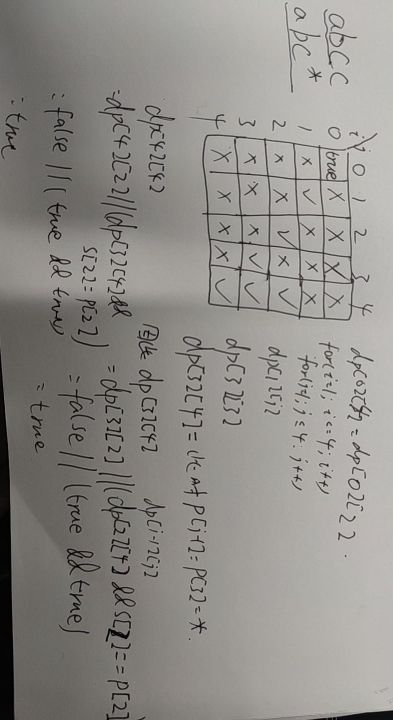 abcc
abc*
i\j 0 1 2 3 4
0 true × × × ×
1 × ✓ × × ×
2 × × ✓ × ✓
3 × × × ✓ ✓
4 × × × × ✓
dp[0][4] = dp[0][2]
for(i=1; i<=4; i++)
for(j=1; j≤4; j++)
dp[i][j]
dp[3][3]
dp[3][4] = 此时 P[j-1] = P[3] = *.
dp[4][4]
= dp[4][2] || (dp[3][4] &&
S[2] = P[2])
= false || (true && true)
= true
因此 dp[3][4] dp[i-1][j]
= dp[3][2] || (dp[2][4] && S[2] == P[2]
= false || (true && true)
= true